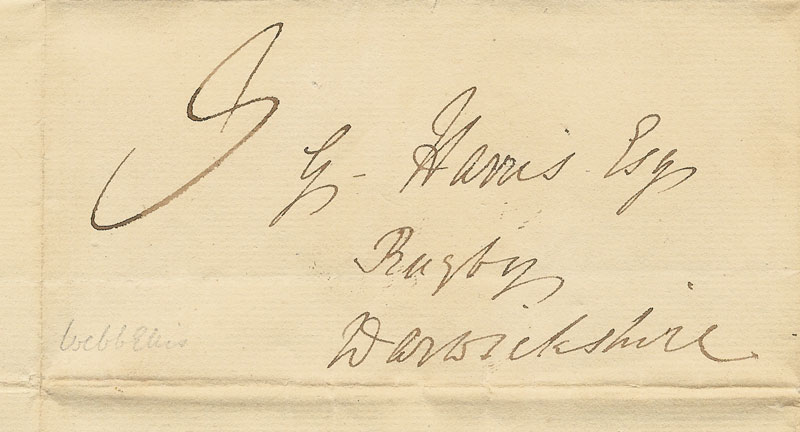 G. Harris Esq
Rugby
Warwickshire
Webb Ellis